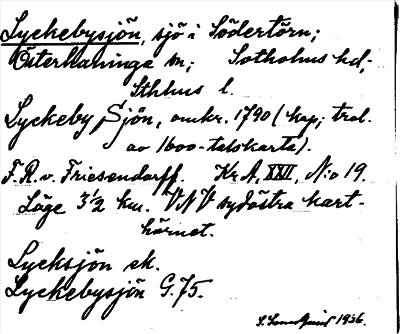 Lyckebysjön, sjö i Södertörn;
Österhaninge sn; Sotholms hd;
Sthlms l.
Lyckeby Sjön, omkr. 1790 (kop; trol.
av 1600-talskarta).
F. R. v. Friesendorff. Kr A, XXII, N:o 19.
Läge 3 1/2 km. VNV sydöstra kart-
hörnet.
Lycksjön ek.
Lyckebysjön G. 75.
1936.